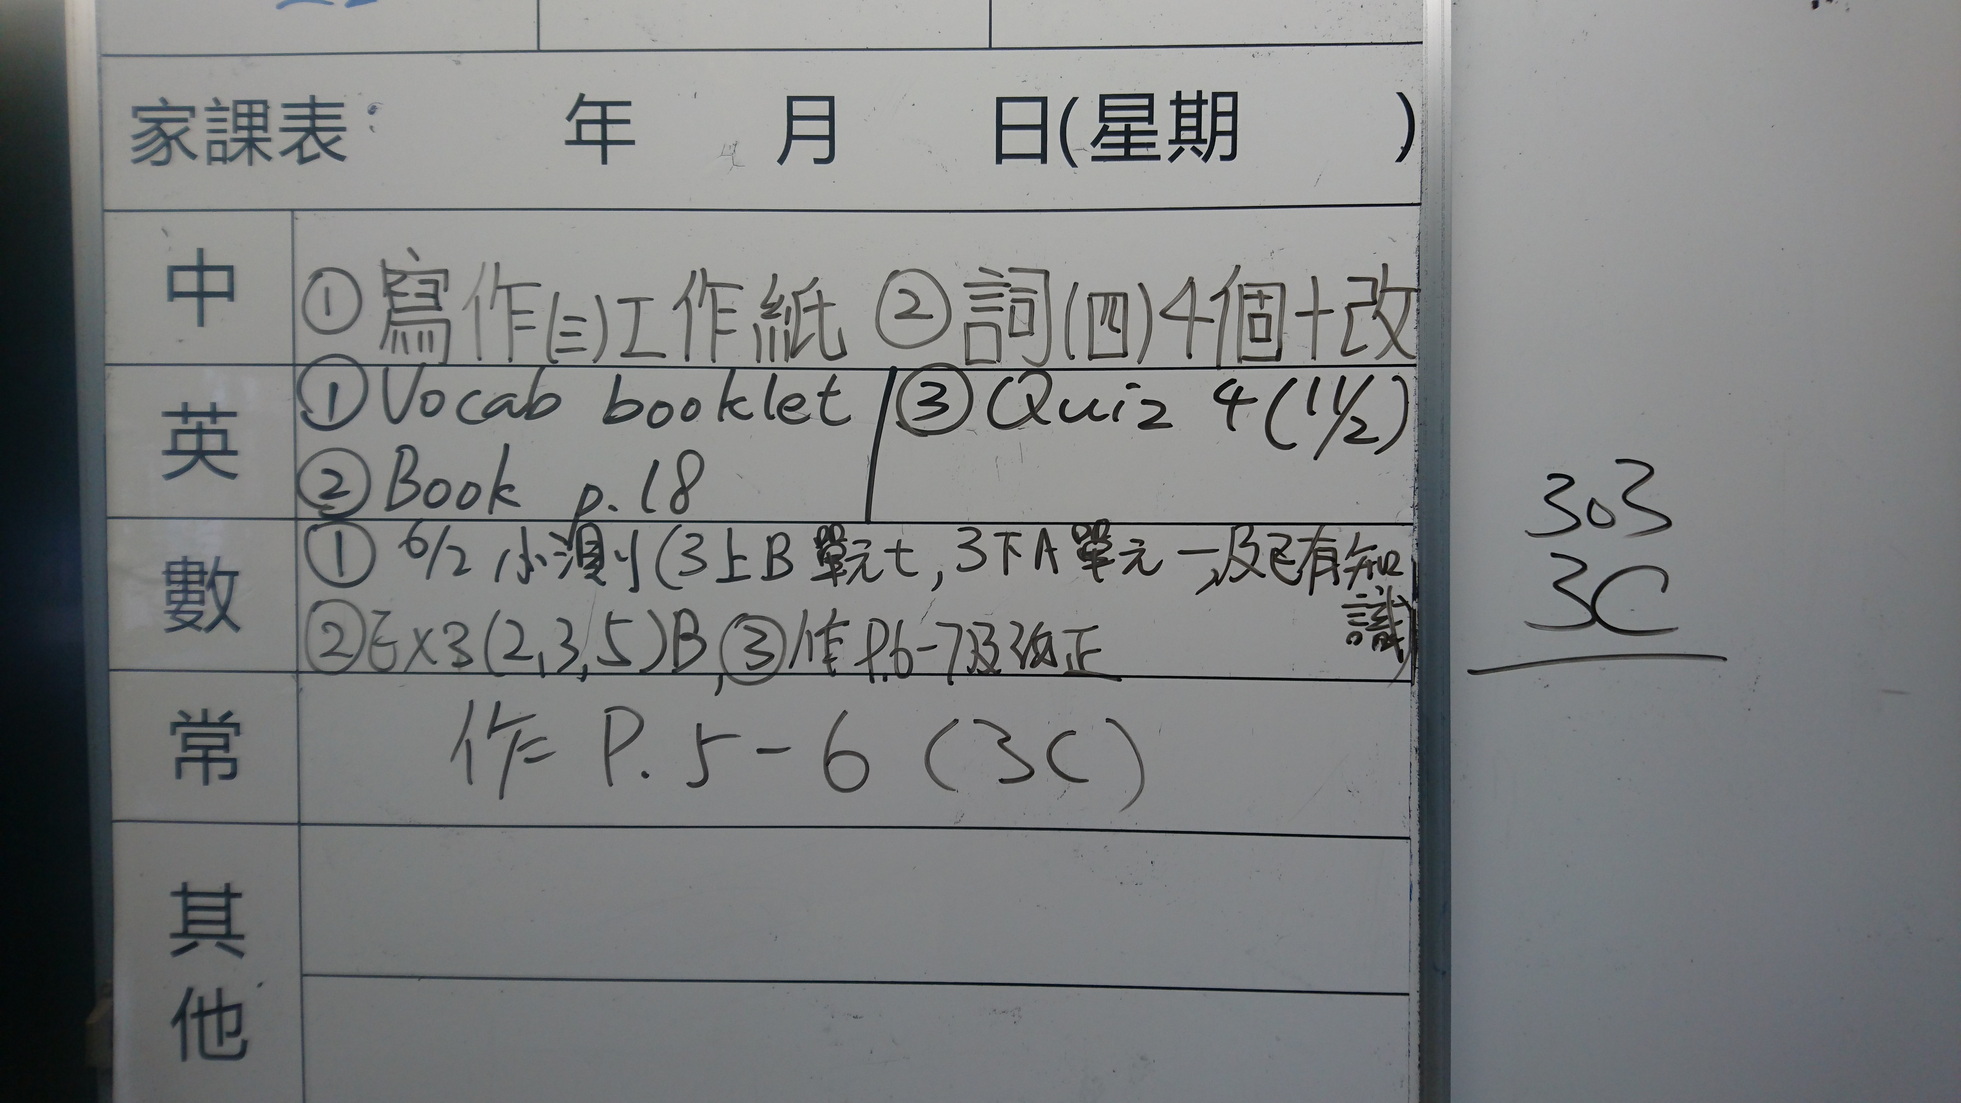 家課表: 年 月 日(星期 )
中 ①寫作(三)工作紙 ②詞(四)4個+改
英 ①Vocab booklet ③Quiz 4 (11/2)
②Book p.18
數 ① 6/2 小測(3上B單元七,3下A單元一,及已有知識)
②Ex3(2,3,5)B,③作P.6-7及改正
常 作 P.5-6 (3C)
其他
303
3C